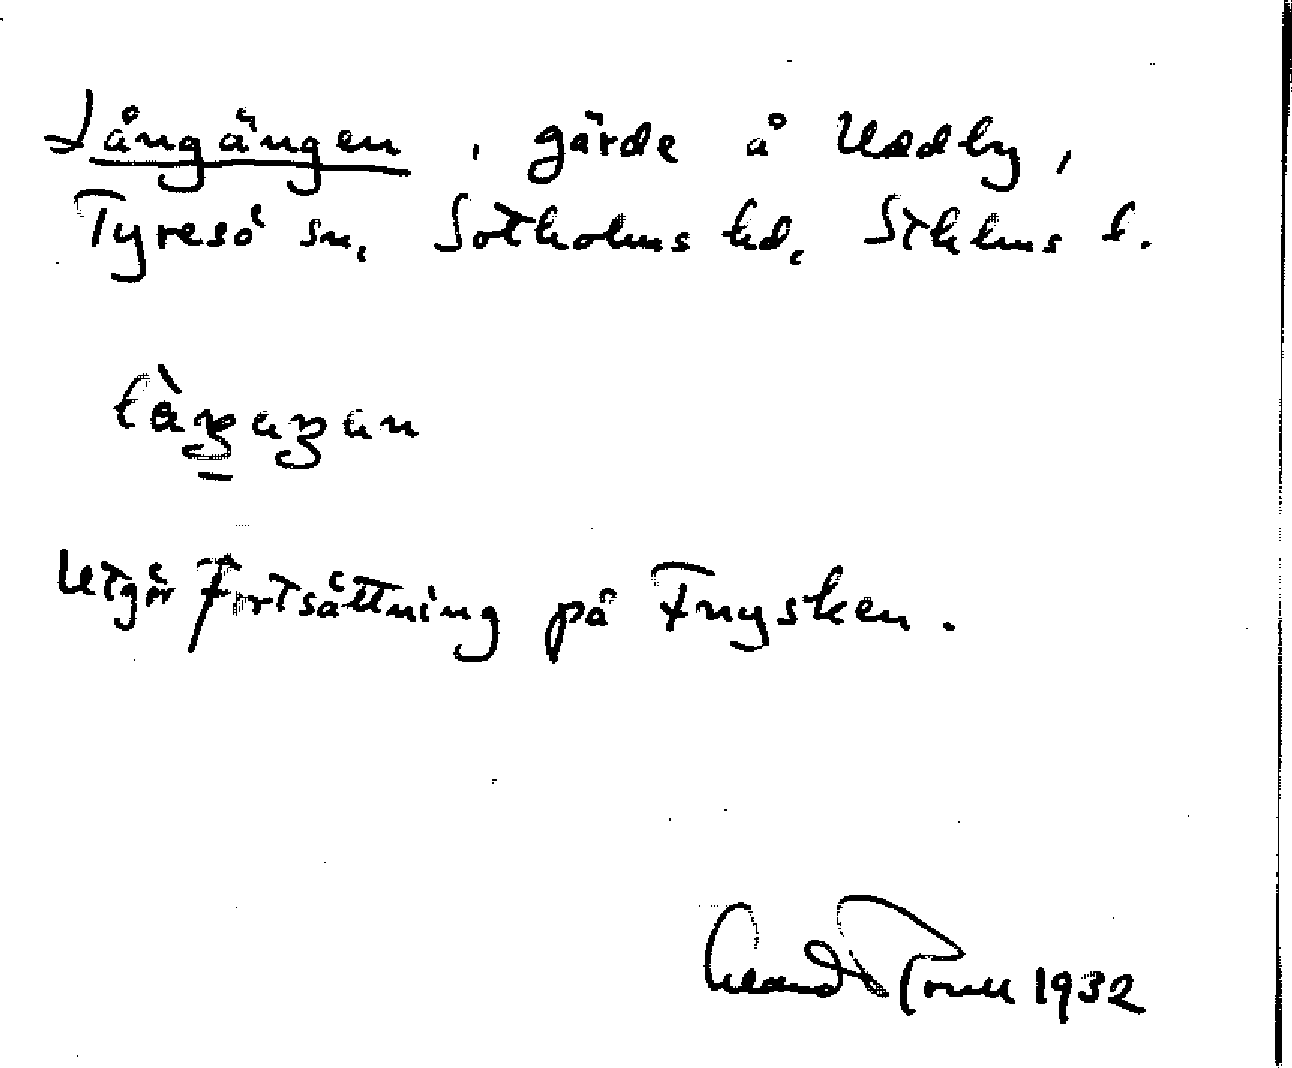 Långängen, gärde å Uddby,
Tyresö sn, Sotholms hd, Sthlms l.
Utgör fortsättning på Fnysken.
1932